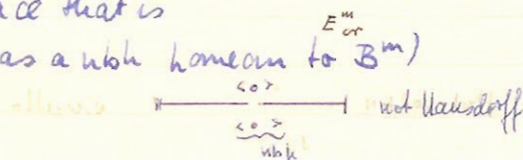 ce that is
E^m or
as a nbh homeom to B^m)
<o>
not Hausdorff
<o>
nbh